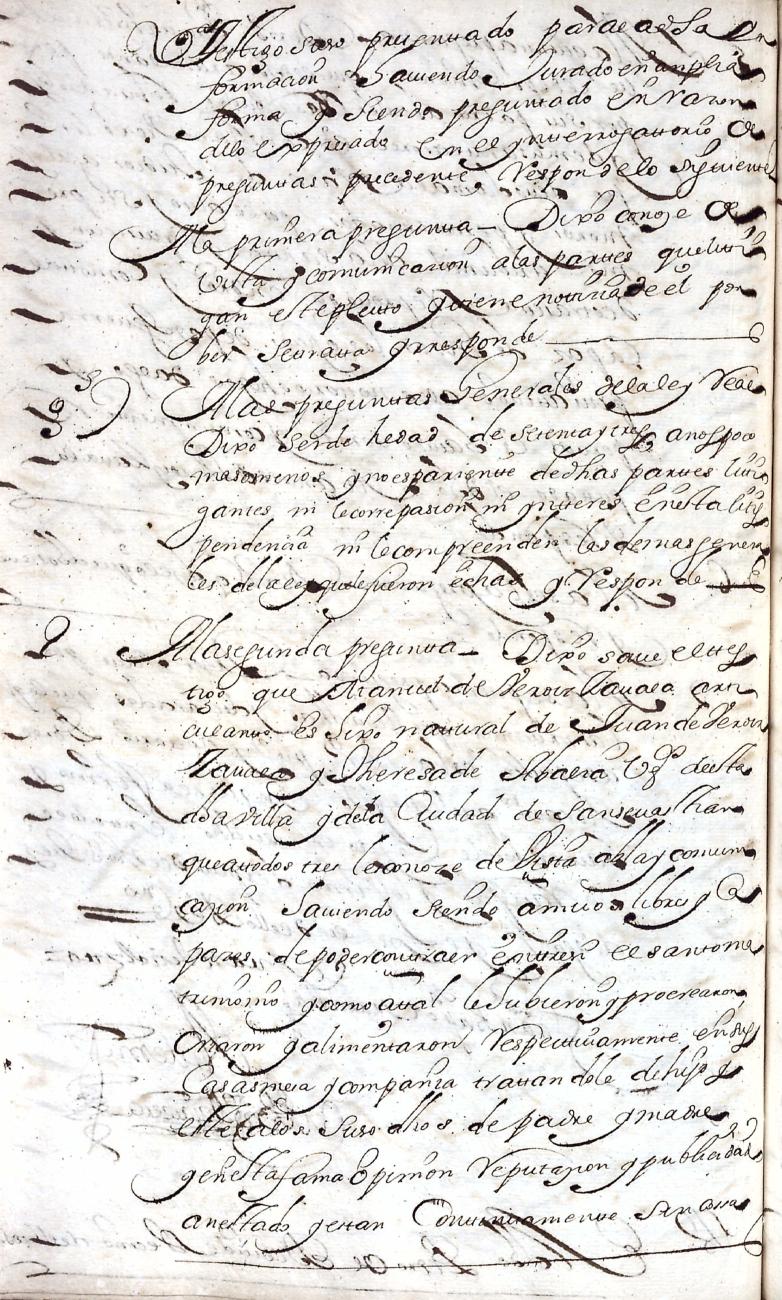 testigo suso presentado para la dha in
formacion haviendo Jurado en amplia
forma y siendo preguntado en razon
de lo expresado en el ynterrogattorio de
preguntas precedente Respondelo siguiente
A la primera pregunta — Dixo conoze de
vista y comunicazion a las partes que liti
gan este pleito y tiene noticia de el por
ber se tratta y responde
A las preguntas Generales de la ley Real
Dixo ser de hedad de setenta y tres años poco
mas o menos y no es pariente de dhas partes liti
gantes ni le corre pasion ni ynteres en esta litis
pendencia ni le compreenden las demas genera
les de la ley que le fueron echas y Responde
2 A la segunda pregunta — Dixo save el tes
tigo que Manuel de Veroiz Zavala arti
culante es hixo natural de Juan de Veroiz
Zavala y Theresa de Abaera Vz.ᵒˢ de esta
dha villa y de la Ciudad de San sevasthian
que a todos tres les conoze de Vista abla y comuni
cazion haviendo siendo amvos libres y Ca
pazes de poder contraer entre si el santo ma
trimonio y como a tal le hubieron y procrearon
Criaron y alimentaron Respectivamente en sus
Casas mesa y compañia tratandole de hijo y
este a los suso dhos de padre y madre
y en esta fama opinion reputazion y publicidad
an estado y estan Continuamente sin cossa